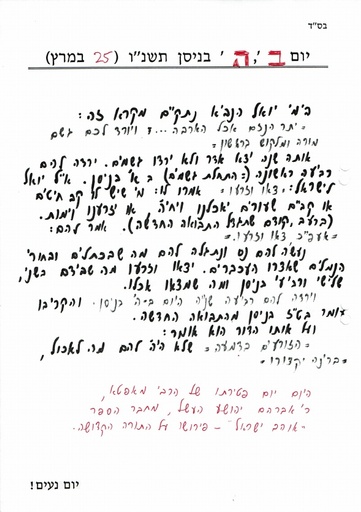 בס"ד
יום ב', ה' בניסן תשנ"ו (25 במרץ)
בימי יואל הנביא נתקיים מקרא זה:
"יתר הגזם אכל הארבה...ויורד לכם גשם
מורה ומלקוש בראשון"
אותה שנה יצא אדר ולא ירדו גשמים. ירדה להם
רביעה ראשונה (=תחלת גשמים) ב א' בניסן. א"ל יואל
לישראל: "צאו וזרעו" אמרו לו: מי שיש לו קב חיטים
או קב"ם שעורים יאכלנו ויחיה או יזרענו וימות.
(ברעב, קודם שתגדל התבואה החדשה). אמר להם:
"אעפ"כ צאו וזרעו".
נעשה להם נס ונתגלה להם מה שבכתלים ובחורי
הנמלים שאצרו העכברים. יצאו וזרעו מה שבידם בשני,
שלישי ורביעי בניסן ומה שמצאו אכלו.
וירדה להם רביעה שניה היום ב-ה' בניסן. והקריבו
עומר בט"ז בניסן מהתבואה החדשה.
ועל אותו הדור הוא אומר:
"הזורעים בדמעה" שלא היה להם מה לאכול,
"ברינה יקצורו"
היום יום פטירתו של הרבי מאפטא,
ר' אברהם יהושע העשל, מחבר הספר
"אוהב ישראל" - פירוש על התורה הקדושה.
יום נעים!